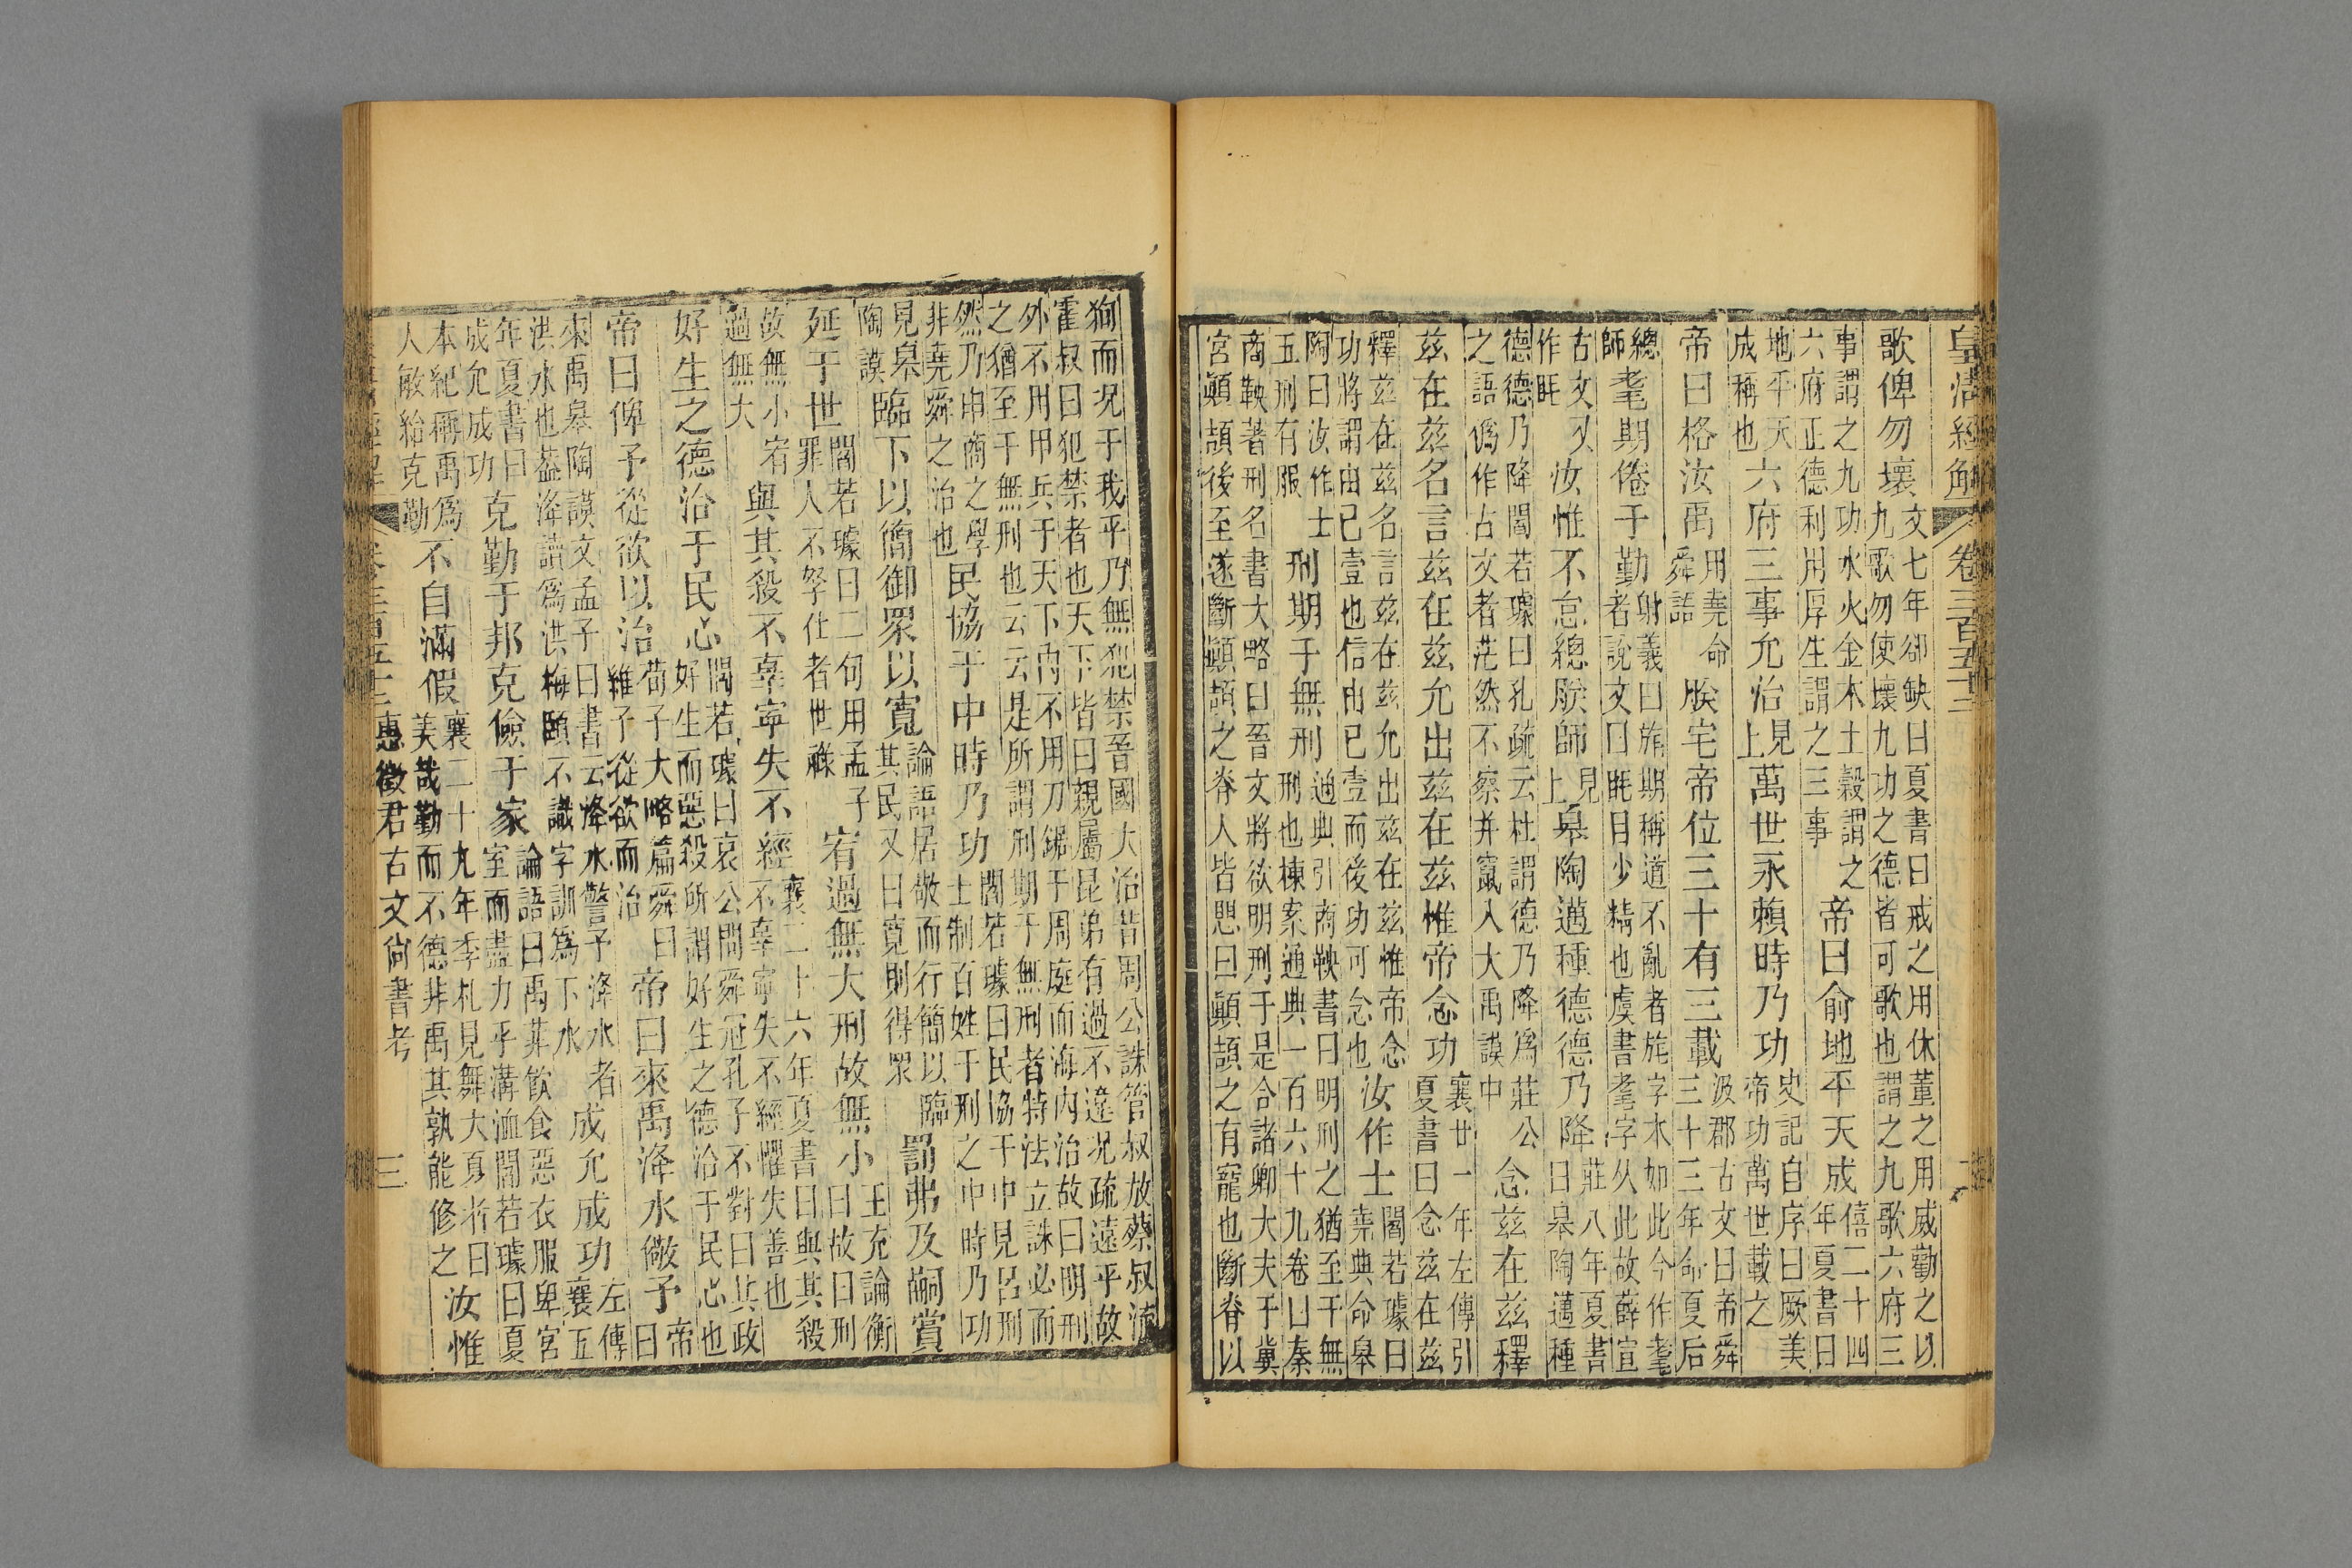 皇清經解 卷三百五十二
歌俾勿壞文七年郤缺曰夏書曰戒之用休董之用威勸之以九歌勿使壞九功之德皆可歌也謂之九歌六府三
事謂之九功水火金木土穀謂之六府正德利用厚生謂之三事帝曰俞地平天成僖二十四年夏書曰
地平天成稱也六府三事允治見上萬世永賴時乃功史記自序曰厥美帝功萬世載之
帝曰格汝禹用堯命舜語朕宅帝位三十有三載汲郡古文曰帝舜三十三年命夏后
總師耄期倦于勤射義曰旄期稱道不亂者旄字本如此今作耄者說文曰眊目少精也虞書耄字从此故薛宣
古文以作眊汝惟不怠總朕師見上皋陶邁種德德乃降莊八年夏書曰皋陶邁種
德德乃降閻若璩曰孔疏云杜謂德乃降爲莊公之語僞作古文者茫然不察并竄入大禹謨中念茲在茲釋
茲在茲名言茲在茲允出茲在茲惟帝念功襄廿一年左傳引夏書曰念茲在茲
釋茲在茲名言茲在茲允出茲在茲惟帝念功將謂由己壹也信由己壹而後功可念也汝作士閻若璩曰堯典命皋
陶曰汝作士五刑有服刑期于無刑通典引商鞅書曰明刑之猶至于無刑也棟案通典一百六十九卷曰秦
商鞅著刑名書大略曰晉文將欲明刑于是合諸卿大夫于冀宮顛頡後至遂斷顛頡之脊人皆思曰顛頡之有寵也斷脊以
狥而况于我乎乃無犯禁晉國大治昔周公誅管叔放蔡叔流霍叔曰犯禁者也天下皆曰親屬昆弟有過不違况疏遠乎故
外不用甲兵于天下内不用刀鋸于周庭而海内治故曰明刑之猶至于無刑也云云是所謂刑期于無刑者特法立誅必而
然乃申商之學非堯舜之治也民協于中時乃功閻若璩曰民協于中見呂刑士制百姓于刑之中時乃功
見皋陶謨臨下以簡御眾以寬論語居敬而行簡以臨其民又曰寬則得眾罰弗及嗣賞
延于世閻若璩曰二句用孟子罪人不孥仕者世祿宥過無大刑故無小王充論衡曰故曰刑
故無小宥過無大與其殺不辜寧失不經襄二十六年夏書曰與其殺不辜寧失不經懼失善也
好生之德洽于民心閻若璩曰哀公問舜冠孔子不對曰其政好生而惡殺所謂好生之德洽于民心也
帝曰俾予從欲以治荀子大略篇舜曰維予從欲而治帝曰來禹洚水儆予帝曰
來禹皋陶謨文孟子曰書云洚水警予洚水者洪水也葢洚讀爲洪梅頤不識字訓爲下水成允成功左傳襄五
年夏書曰成允成功克勤于邦克儉于家論語曰禹菲飲食惡衣服卑宮室而盡力乎溝洫閻若璩曰夏
本紀稱禹爲人敏給克勤不自滿假襄二十九年季札見舞大夏者曰美哉勤而不德非禹其孰能修之汝惟
經解 卷三百五十二 惠徵君古文尚書考 三